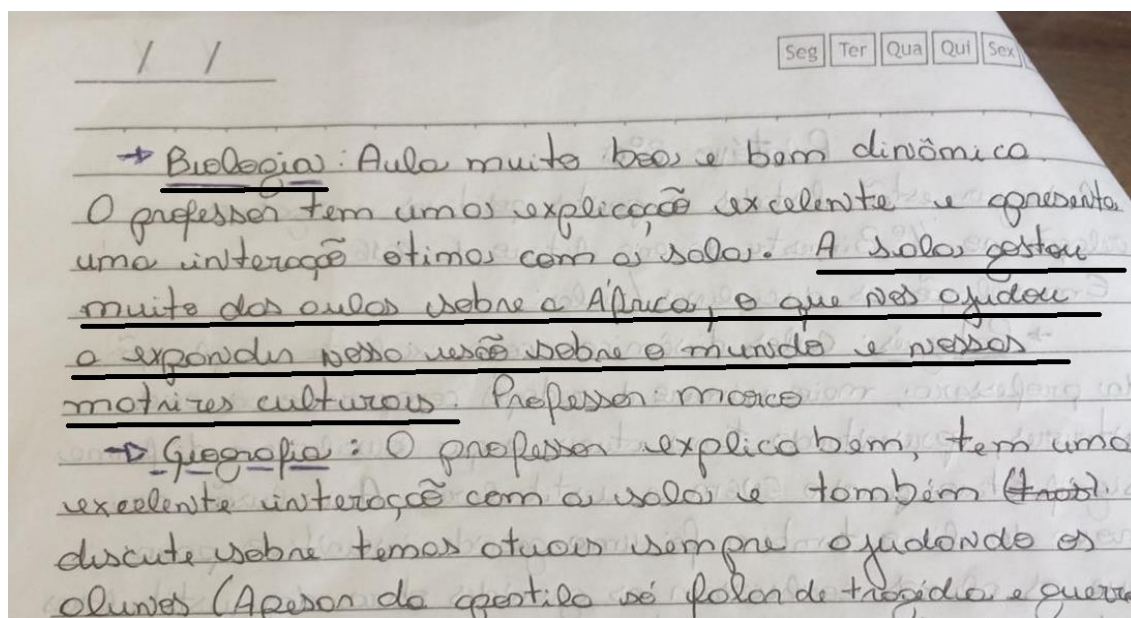 / /
Seg Ter Qua Qui Sex
→ Biologia: Aula muito boa e bem dinâmica.
O professor tem uma explicação excelente e apresenta
uma interação ótima com a sala. A sala gostou
muito das aulas sobre a África, o que nos ajudou
a expandir nosso visão sobre o mundo e nossas
matrizes culturais. Professor: Marco
→ Geografia: O professor explica bem, tem uma
excelente interação com a sala e também
discute sobre temas atuais sempre ajudando os
alunos (Apesar da apostila só falar de tragédia e guerra